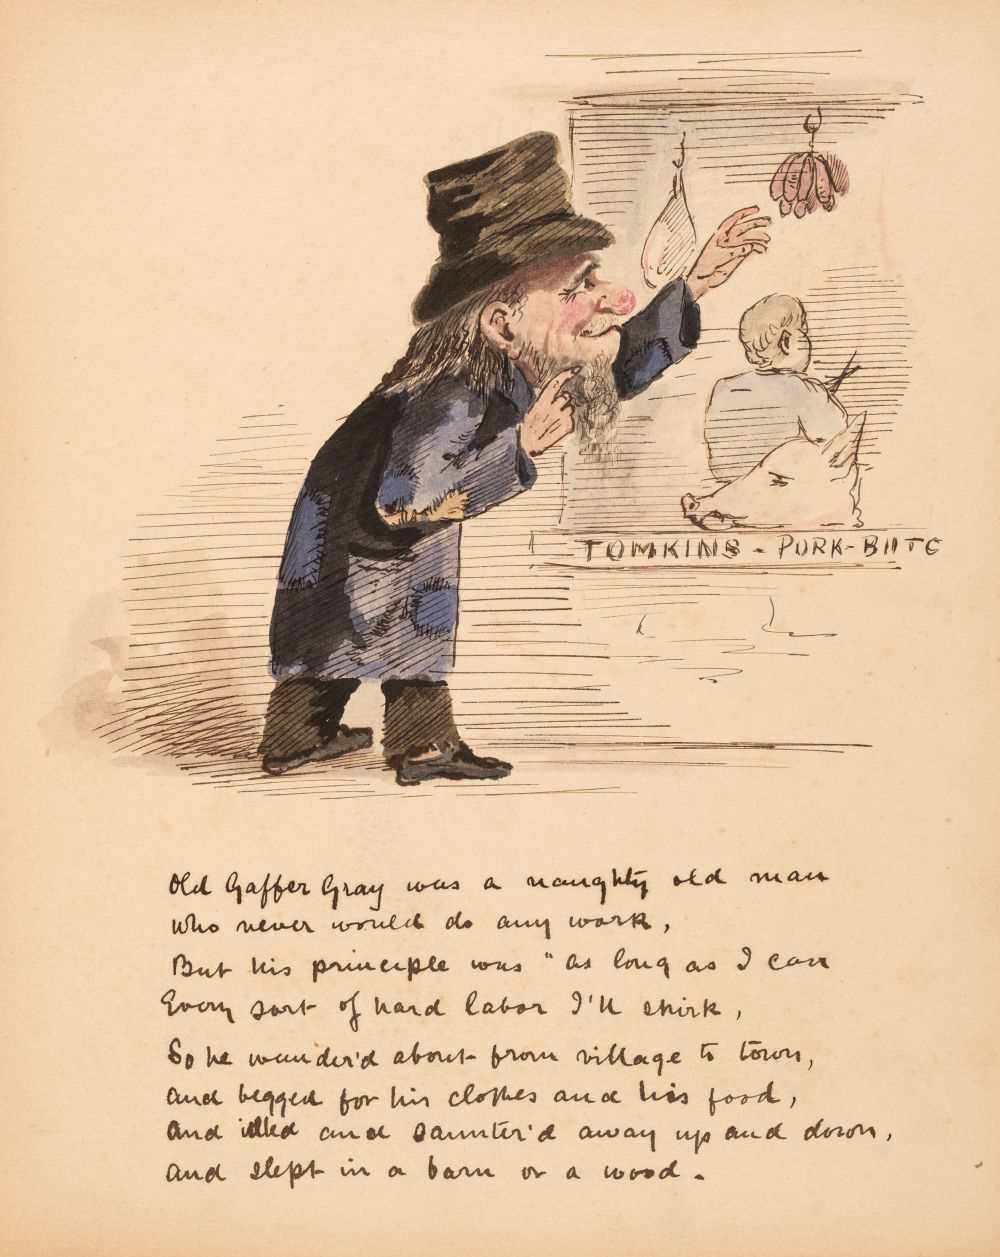 TOMKINS - PORK-BUTC
Old Gaffer Gray was a naughty old man
who never would do any work,
But his principle was "as long as I can
Every sort of hard labor I'll shirk,
So he wander'd about from village to town,
and begged for his clothes and his food,
and idled and saunter'd away up and down,
and slept in a barn or a wood.